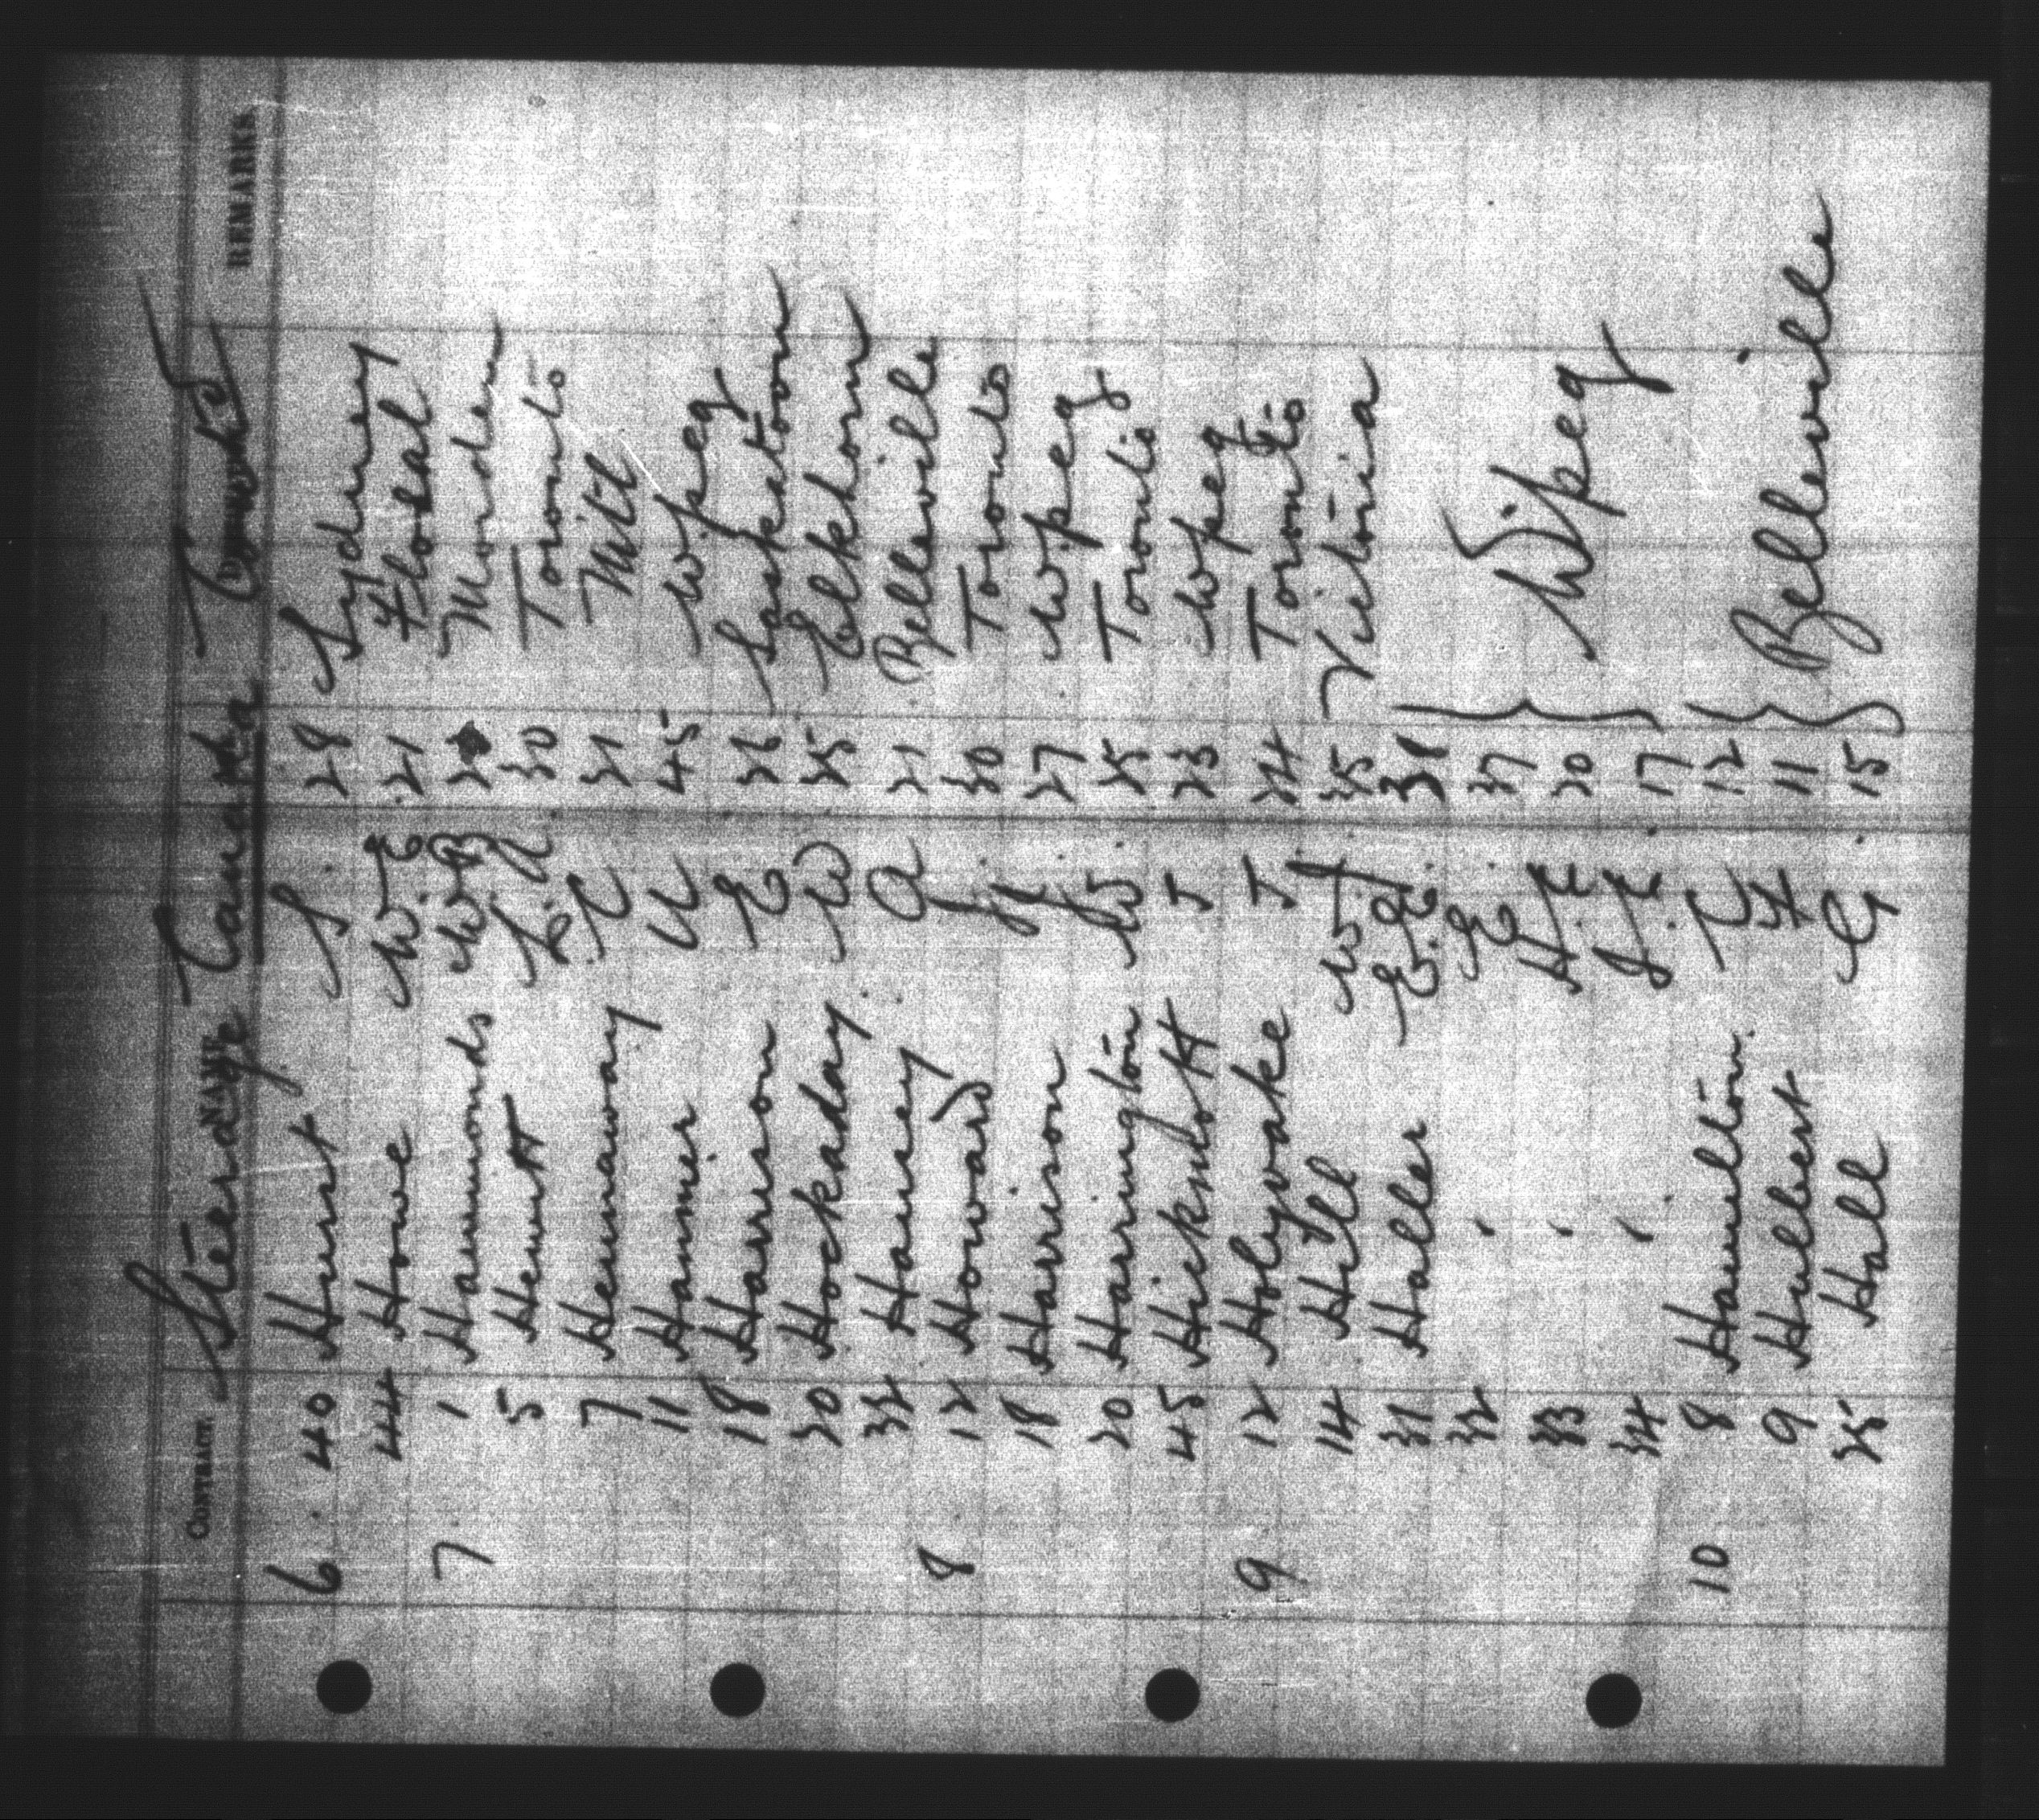 Steerage Canada
CONTRACT. NAME REMARKS
6 40 Hurst S. 28 Sydney
44 Howe W.E 21 Flosal
7 1 Hammonds W.B
5 Hewitt 30 Toronto
7 Hennaway C 31 Mtl
11 Hanmer U 45 Wpeg
18 Harrison E 36 Saskatoon
20 Hockaday W 25 Elkhorn
32 Haney A 21 Belleville
8 12 Howard J. 30 Toronto
18 Harrison H. 27 Wpeg
20 Harrington W. 25 Toronto
45 Hicknott J 23 Wpeg
9 12 Holyoake J 24 Toronto
14 Hill W.J. 35 Victoria
31 Haller E.E. 31
32 " E. 37 Wipeg
33 " H.E 20
34 " J.E. 17
10 8 Hamilton. C 12
9 Hulbert H 11 Belleville
25 Hall G. 15